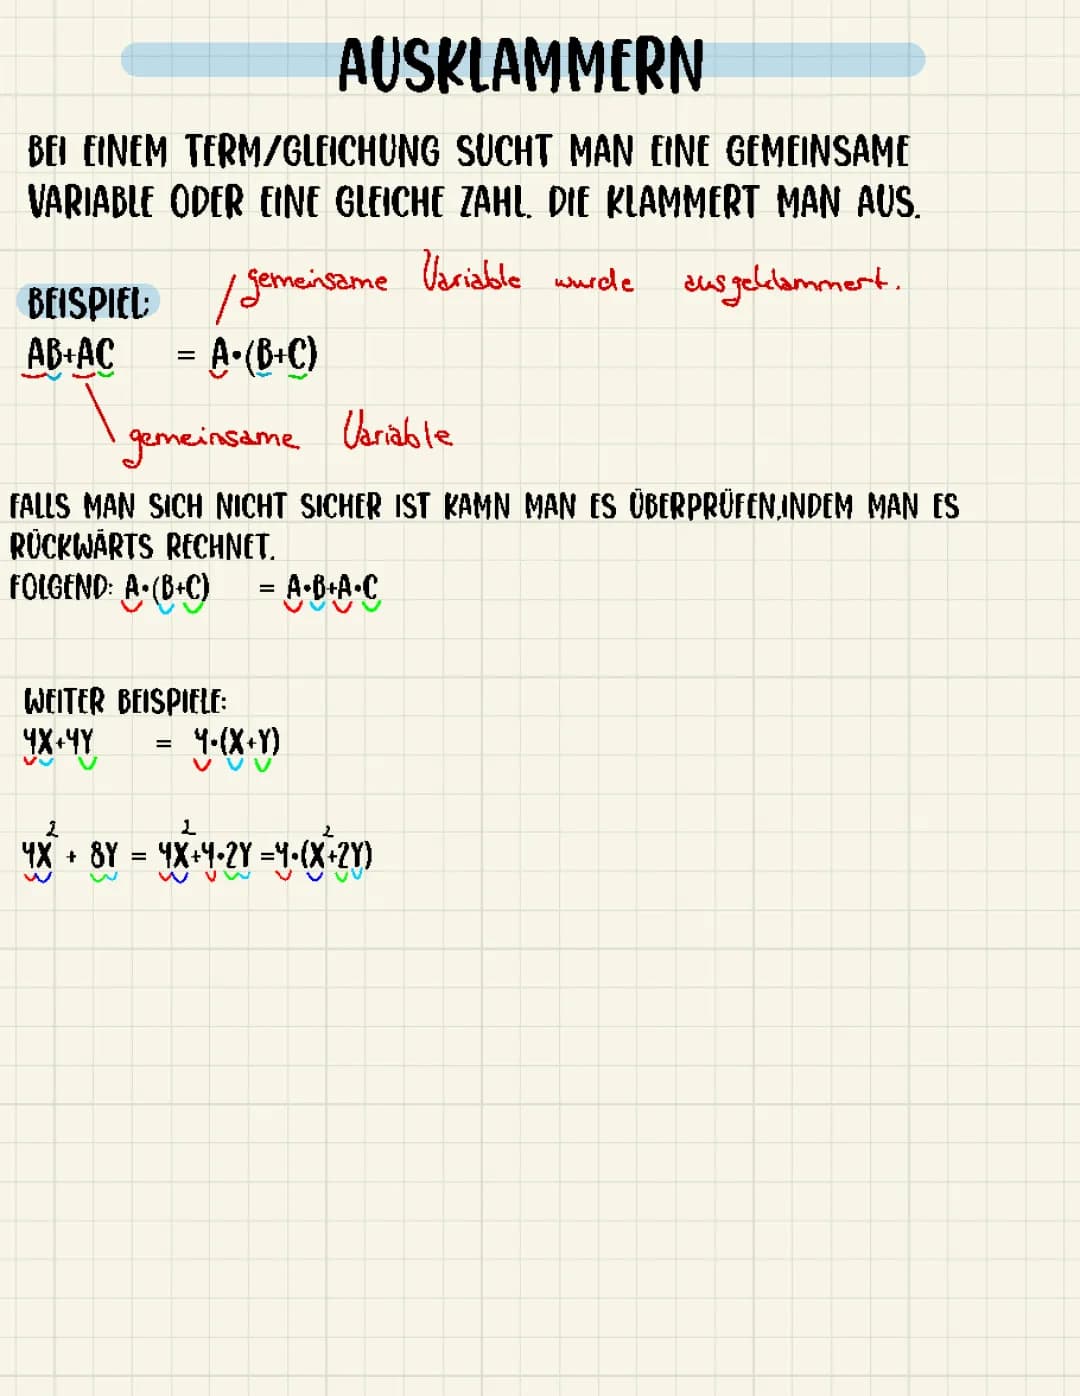 AUSKLAMMERN
BEI EINEM TERM/GLEICHUNG SUCHT MAN EINE GEMEINSAME
VARIABLE ODER EINE GLEICHE ZAHL. DIE KLAMMERT MAN AUS.
gemeinsame Variable wurde ausgeklammert.
BEISPIEL:
AB+AC = A·(B+C)
gemeinsame Variable
FALLS MAN SICH NICHT SICHER IST KAMN MAN ES ÜBERPRÜFEN,INDEM MAN ES
RÜCKWÄRTS RECHNET.
FOLGEND: A·(B+C) = A·B+A·C
WEITER BEISPIELE:
4X+4Y = 4·(X+Y)
4X² + 8Y = 4X²+4·2Y =4·(X²+2Y)